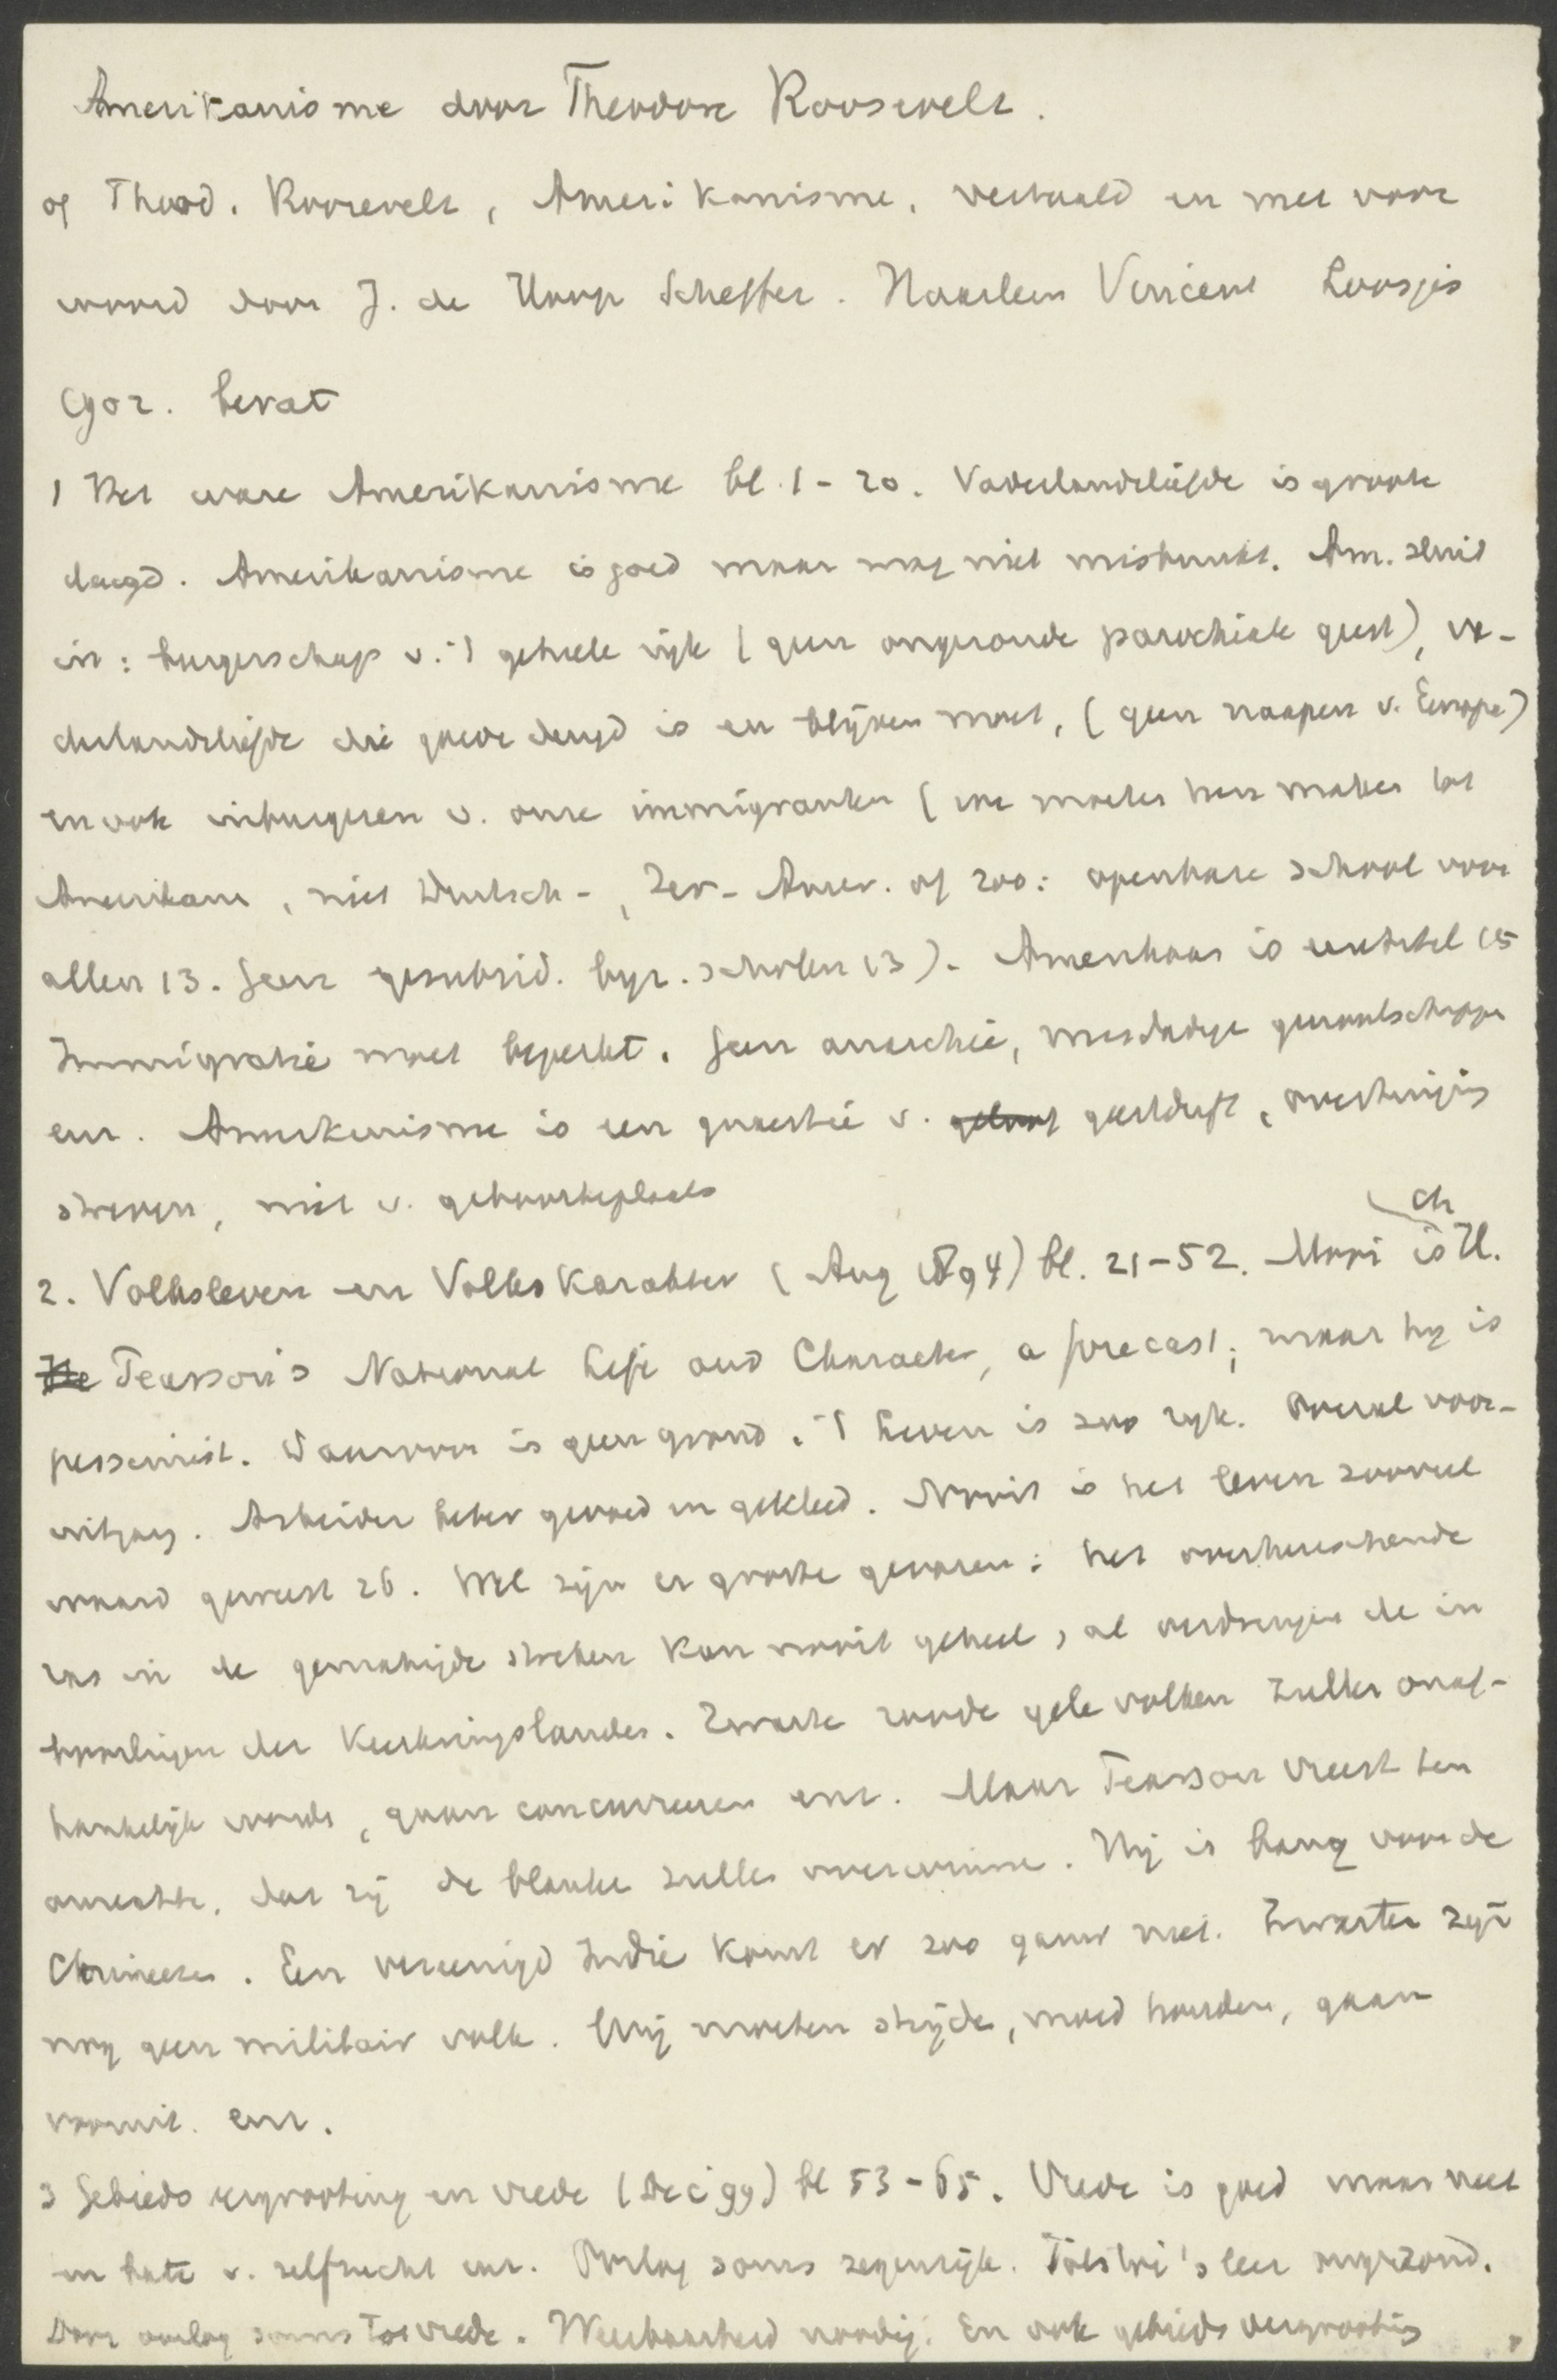 Amerikanisme door Theodore Roosevelt.
of Theod. Roosevelt, Amerikanisme, vertaald en met voor
woord door J. de Hoop Scheffer. Haarlem Vincent Loosjes
1902. bevat
1 Het ware Amerikanisme bl. 1-20. Vaderlandsliefde is groote
deugd. Amerikanisme is goed maar mag niet misbruikt. Am. sluit
in: burgerschap v. 't geheele rijk (geen ongezonde parochiale geest), va-
derlandsliefde die goede deugd is en blijven moet, (geen naäpen v. Europa)
en ook inburgeren v. onze immigranten (we moeten hen maken tot
Amerikans, niet Duitsch-, Ier-Amer. of zoo: openbare school voor
allen 13. Geen gesubsid. byz. scholen 13). Amerikaan is eeretitel 15
Immigratie moet beperkt. Geen anarchie, misdadige genootschappen
enz. Amerikanisme is een quaestie v. geestdrift, overtuiging
streven, niet v. geboorteplaats
2. Volksleven en Volkskarakter (Aug 1894) bl. 21-52. Mooi is Ch H.
Pearson's National Life and Character, a forecast; maar hy is
pessimist. Daarvoor is geen grond. 't Leven is zoo ryk. Overal voor-
uitgang. Arbeider beter gevoed en gekleed. Nooit is het leven zooveel
waard geweest 26. Wel zijn er groote gevaren: het overheerschende
ras in de gematigde streken kan nooit geheel, al verdringen de in
boorlingen der Keerkringslanden. Zwarte roode gele volken zullen onaf-
hankelijk worden, gaan concurreeren enz. Maar Pearson vreest ten
onrechte, dat zij de blanke zullen overwinnen. Hij is bang voor de
Chineezen. Een vereenigd Indië komt er zoo gauw niet. Zwarten zijn
nog geen militair volk. Wij moeten strijden, moed houden, gaan
vooruit enz.
3 Gebieds vergrooting en vrede (Dec 99) bl 53-65. Vrede is goed maar niet
en bate v. zelfzucht enz. Oorlog soms zegenrijk. Tolstoi's leer ongezond.
Door oorlog soms tot vrede. Weerbaarheid noodig. En ook gebieds vergrooting